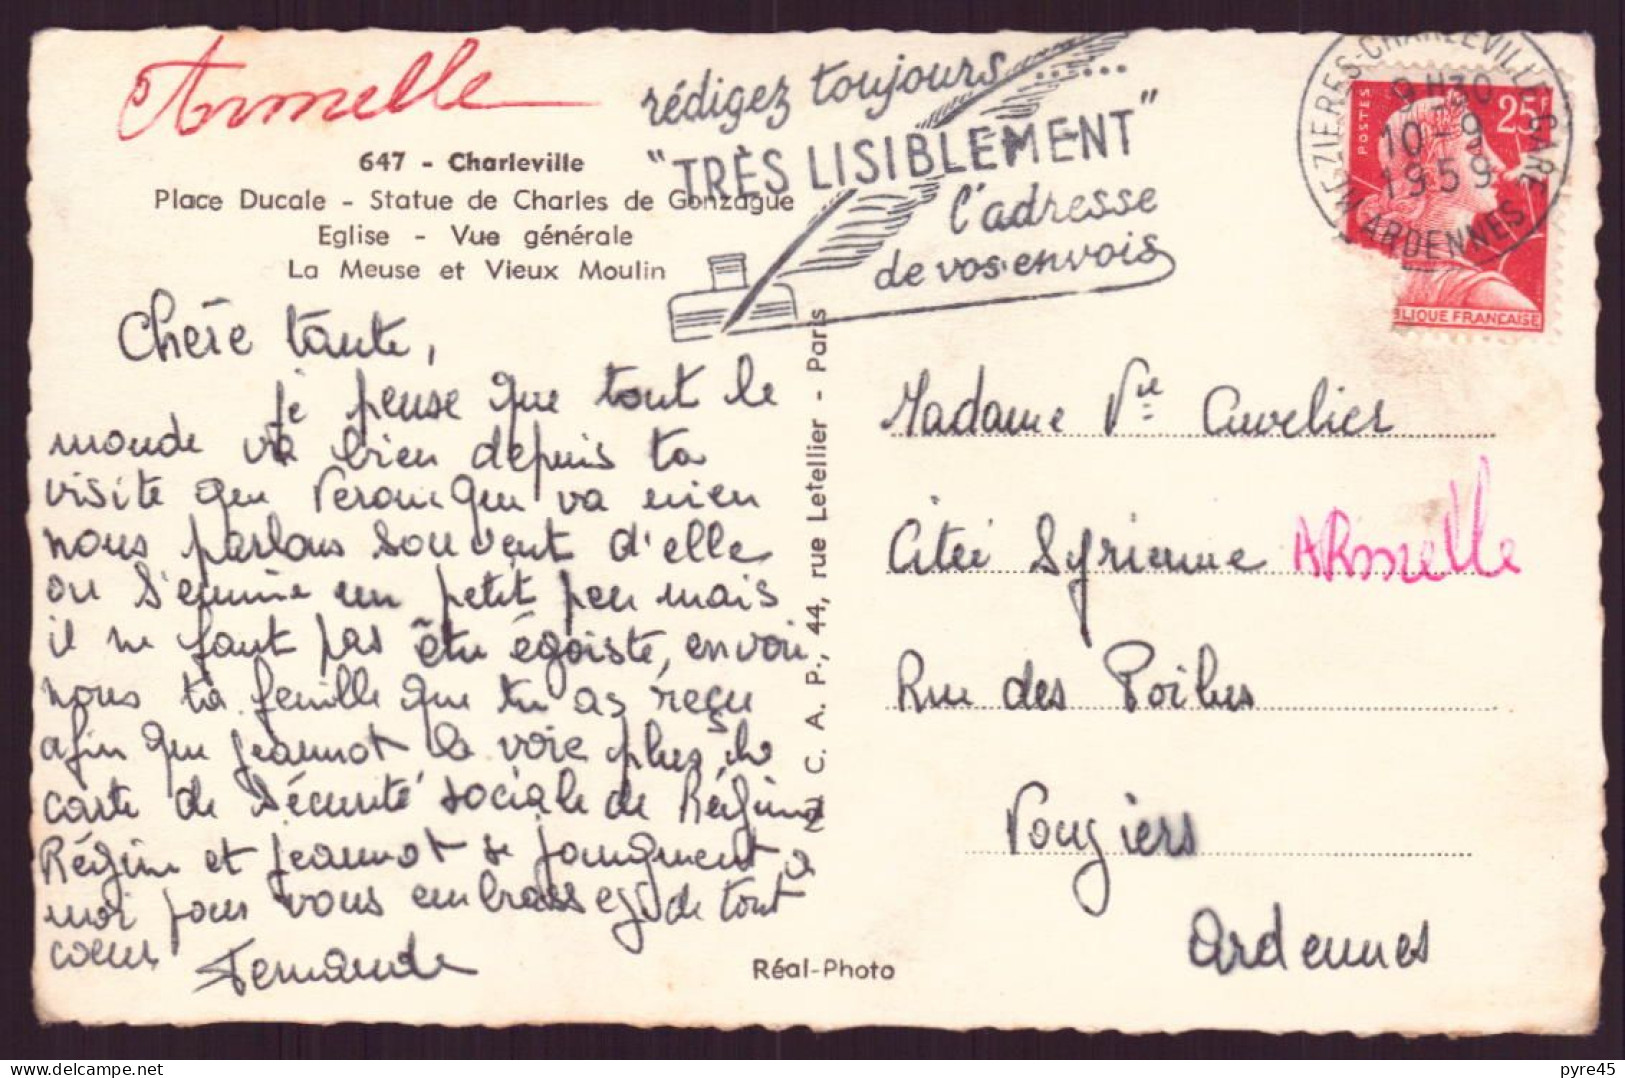 Armelle
647 - Charleville
Place Ducale - Statue de Charles de Gonzague
Eglise - Vue générale
La Meuse et Vieux Moulin
rédigez toujours......
"TRÈS LISIBLEMENT"
l'adresse
de vos envois
MEZIERES-CHARLEVILLE GARE
9 H30
10-9
1959
ARDENNES
POSTES
25F
BLIQUE FRANÇAISE
Chère tante,
je pense que tout le
monde va bien depuis ta
visite que Veronique va mien
nous parlons souvent d'elle
on s'ennuie un petit peu mais
il ne faut pas être égoiste, envoie
nous ta feuille que tu as reçu
afin que Jeannot la voie plus la
carte de sécurité sociale de Régine
Régine et Jeannot se joingnent a
moi pour vous embrasser de tout
coeur Fernande
E. C. A. P., 44, rue Letellier - Paris
Réal-Photo
Madame Vve Cuvelier
Citée Syrienne ARmelle
Rue des Poilus
Vouziers
Ardennes
pyre45